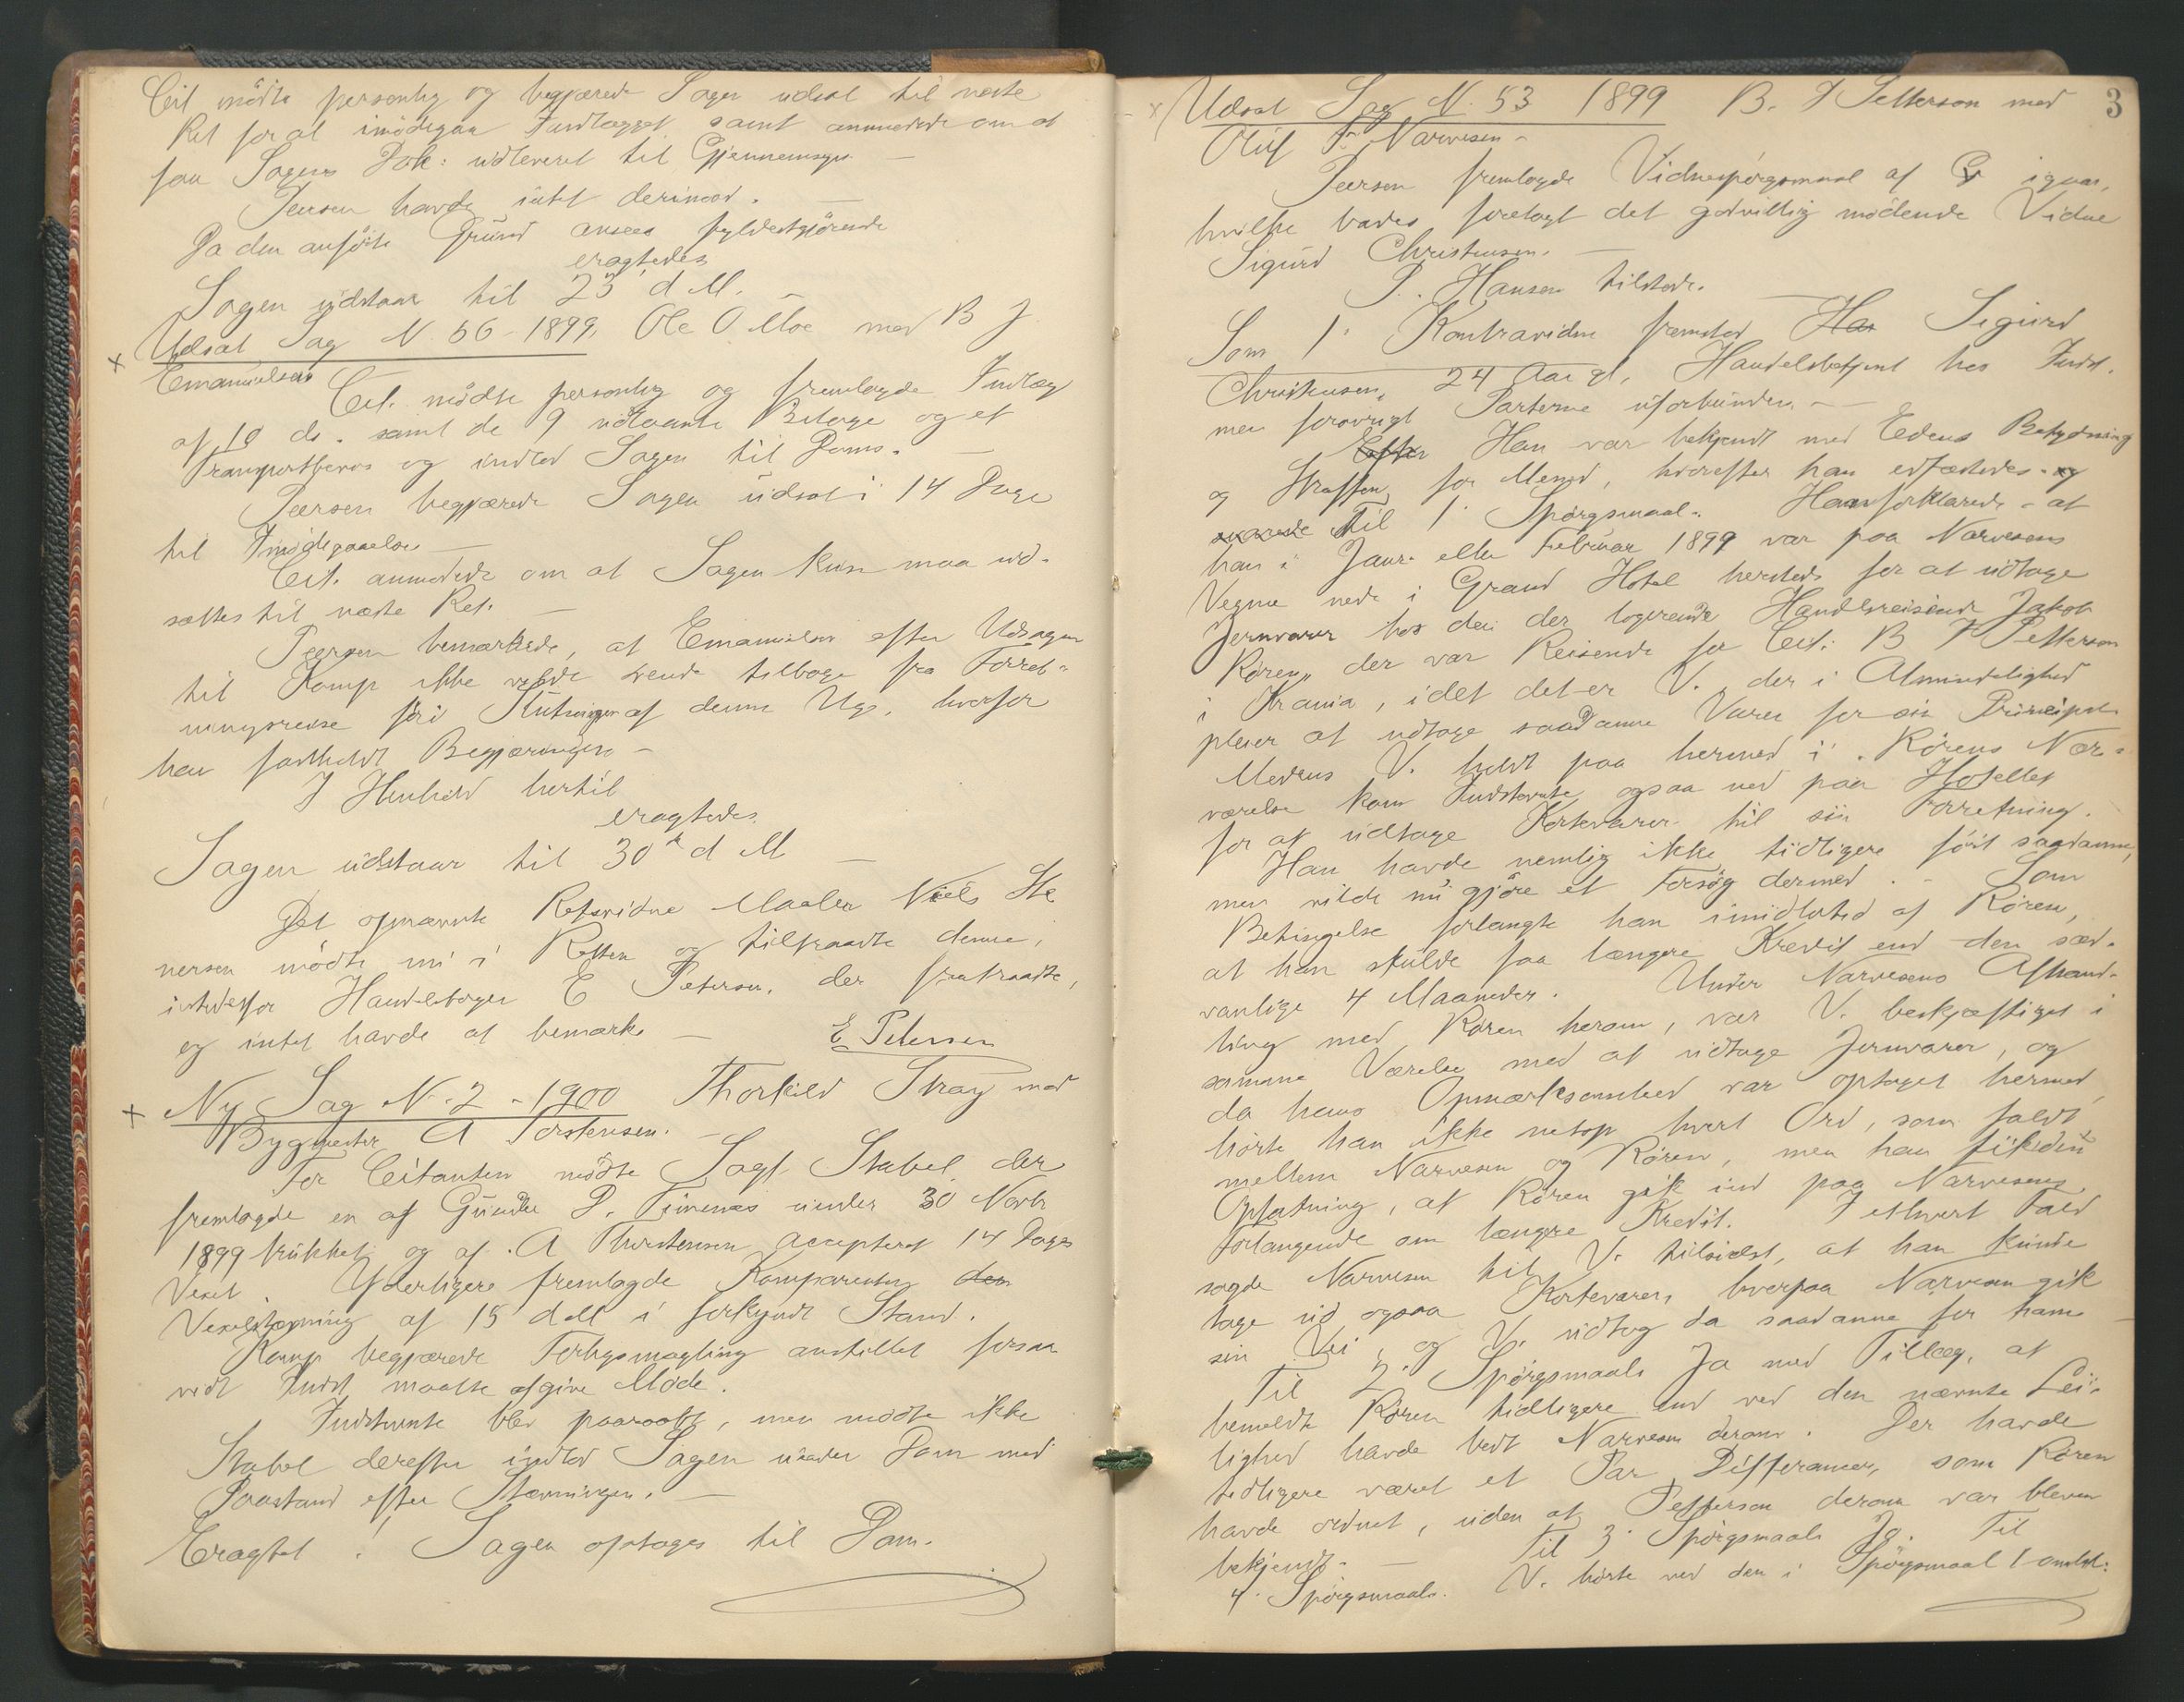 Cit mödte personlig og begjærede Sagen udsat til næste
Ret for at imödegaa Indlægget samt anmodede om at
faa Sagens Dok: udleveret til Gjennemsyn. —
Jensen havde intet derimod. —
Da den anförte Grund ansees fyldestgjörende
eragtedes
Sagen udstaar til 23' d M.
Udsat Sag N. 56 - 1899. Ole O Moe mod B J
Emanuelsen
Cit. mödte personlig og fremlagde Indlæg
af 10 ds. samt de 9 udlaante Bilage og et
Transportbevis og indlod Sagen til Doms. —
Peersen begjærede Sagen udsat i 14 Dage
til Imödegaaelse —
Cit. anmodede om at Sagen kun maa ud-
sættes til næste Ret. —
Peersen bemærkede, at Emanuelsen efter Udsagn
til Komp ikke vilde vende tilbage fra Forret-
ningsreise för Slutningen af denne Uge, hvorfor
han fastholdt Begjæringen —
I Henhold hertil
eragtedes
Sagen udstaar til 30te d M —
Det opnævnte Retsvidne Maaler Niels Ste
nersen mödte nu i Retten og tiltraadte denne,
istedetfor Handelsborger E Petersen, der fratraadte,
og intet havde at bemærke —
E Petersen
Ny Sag N. 2 - 1900 Thorkild Stray mod
Bygmester A Torstensen. —
For Citanten mödte Sagf. Stabel der
fremlagde en af Gunder P. under 30 Novbr
1899 trukket og af A Thorstensen accepteret 14 Dages
Vexel Yderligere fremlagde Komparenten den
Vexelstævning af 15 d M i forkyndt Stand.
Komp begjærede Forligsmægling anstillet forsaa
vidt Indst. maatte afgive Möde.
Indstevnte blev paaraabt, men mödte ikke
Stabel derefter indlod Sagen under Dom med
Paastand efter Stævningen. —
Eragtet! Sagen optages til Dom.
3
Udsat Sag N. 53 1899 B. J Petterson mod
Oluf F. Narvesen -
Peersen fremlagde Vidnespörgsmaal af igaar,
hvilke blev foretagt det godvillig mödende Vidne
Sigurd Christensen. —
P. Hansen tilstede.
Som 1' Kontravidne fremstod Har Sigurd
Christensen, 24 Aar gl, Handelsbetjent hos Indst.
men forövrigt Parterne uforbunden. —
Efter Han var bekjendt med Edens Betydning
og Straffen for Mened, hvorefter han edfæstedes. og
svarede Til 1' Spörgsmaal. Han forklarede - at
han i Janr. eller Februar 1899 var paa Narvesens
Vegne nede i Grand Hotel hersteds for at udtage
Jernvarer hos den der logerende Handelsreisende Jakob
Rören, der var Reisende for Cit: B J Petterson
i Krania, idet det er V. der i Almindelighed
pleier at udtage saadanne Varer for sin Principal
Medens V. holdt paa hermed i Rörens Nær-
værelse kom Indstevnte ogsaa ned paa Hotellet
for at udtage Kortevarer til sin Forretning.
Han havde nemlig ikke tidligere fört saadanne,
men vilde nu gjöre et Forsög dermed. - Som
Betingelse forlangte han imidlertid af Rören,
at han skulde faa længere Kredit end den sæd-
vanlige 4 Maaneder. Under Narvesens Afhand-
ling med Rören herom, var V. beskjæftiget i
samme Værelse med at udtage Jernvarer, og
da hans Opmærksomhed var optaget hermed
hörte han ikke netop hvert Ord, som faldt
mellem Narvesen og Rören, men han fik den
Opfatning, at Rören gik ind paa Narvesens
Forlangende om længere Kredit. I ethvert Fald
sagde Narvesen til V. tilsidst, at han kunde
tage ud ogsaa Kortevarer, hvorpaa Narvesen gik
sin Vei og V. udtog da saadanne for ham —
Til 2' Spörgsmaal: Ja med Tillæg, at
bemeldte Rören tidligere end ved den nævnte Lei-
lighed havde bedt Narvesen derom. Der havde
tidligere været et Par Differancer, som Rören
havde ordnet, uden at Petterson derom var bleven
bekjendt. — Til 3' Spörgsmaal: Ja. Til
4. Spörgsmaal. V. hörte ved den i Spörgsmaal 1 omhdl: